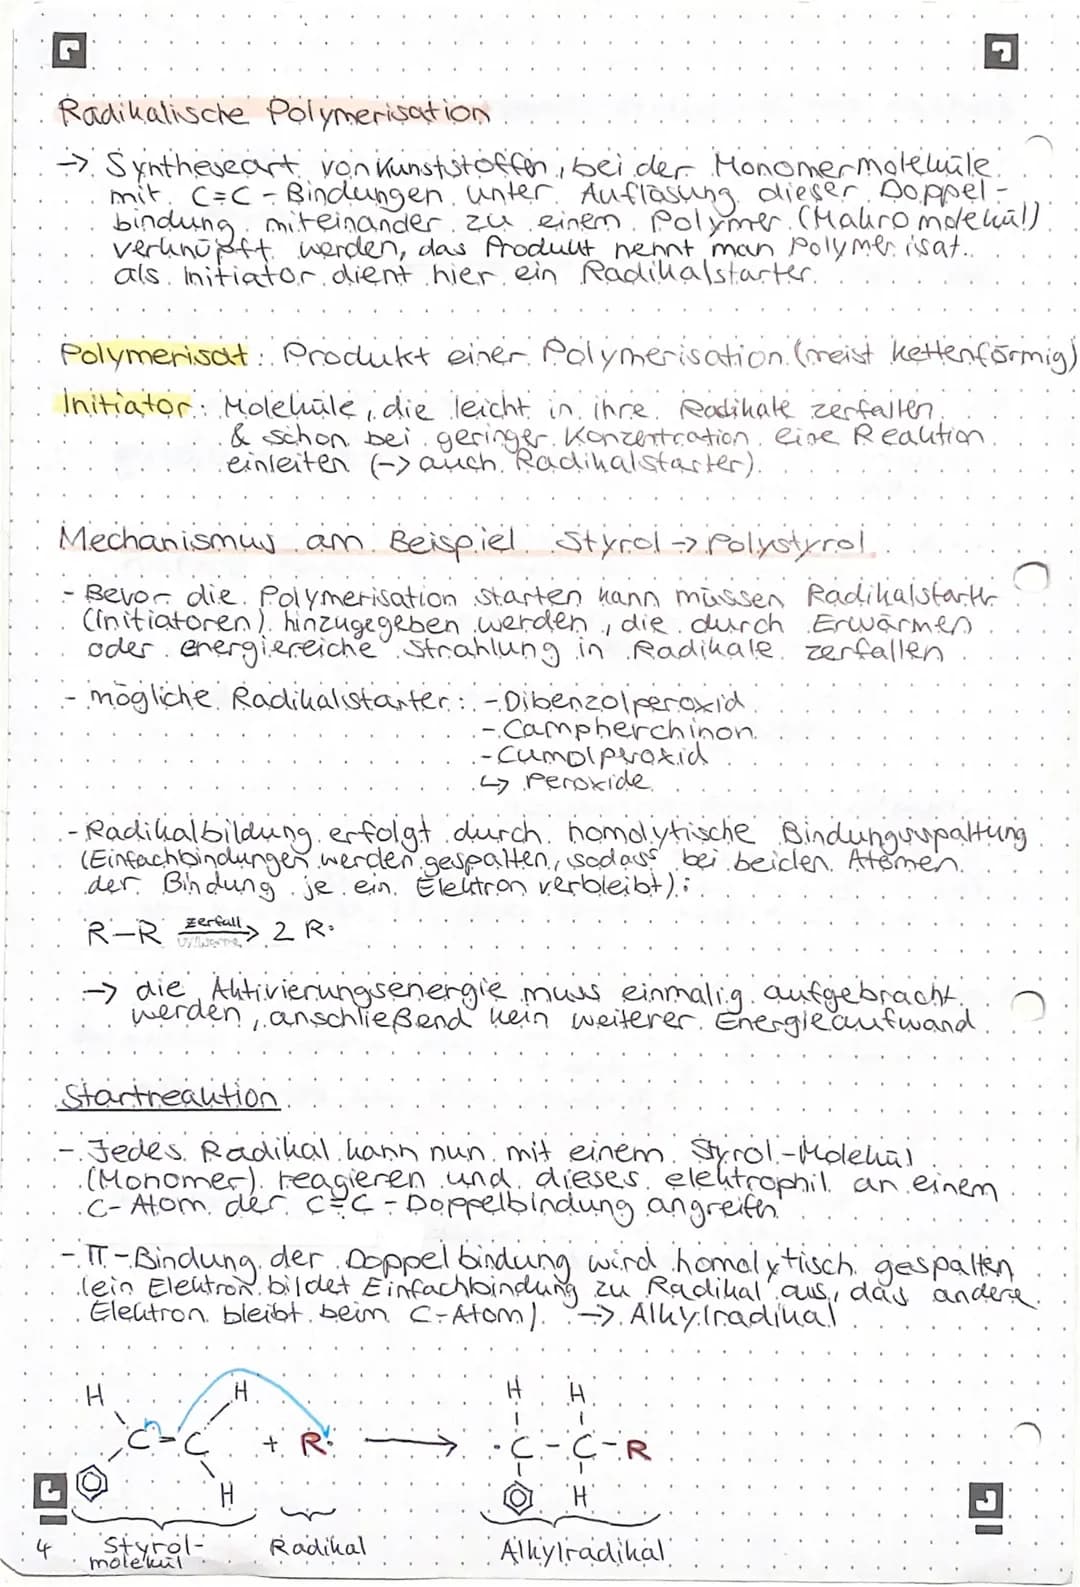 Radikalische Polymerisation
→ Syntheseart von Kunststoffen, bei der Monomermoleküle
mit C=C-Bindungen unter Auflösung dieser Doppel-
bindung miteinander zu einem Polymer (Makromolekül)
verknüpft werden, das Produkt nennt man Polymerisat.
als Initiator dient hier ein Radikalstarter.
Polymerisat: Produkt einer Polymerisation (meist kettenförmig)
Initiator: Moleküle, die leicht in ihre Radikale zerfallen
& schon bei geringer Konzentration eine Reaktion
einleiten (→ auch Radikalstarter).
Mechanismus am Beispiel Styrol → Polystyrol
- Bevor die Polymerisation starten kann müssen Radikalstarter
(Initiatoren) hinzugegeben werden, die durch Erwärmen
oder energiereiche Strahlung in Radikale zerfallen
- mögliche Radikalstarter: - Dibenzolperoxid
- Campherchinon
- Cumolperoxid
↳ Peroxide
- Radikalbildung erfolgt durch homolytische Bindungsspaltung
(Einfachbindungen werden gespalten, sodass bei beiden Atomen
der Bindung je ein Elektron verbleibt):
zerfall
R-R → 2 R·
→ die Aktivierungsenergie muss einmalig aufgebracht
werden, anschließend kein weiterer Energieaufwand
Startreaktion
- Jedes Radikal kann nun mit einem Styrol-Molekül
(Monomer) reagieren und dieses elektrophil an einem
C-Atom der C=C-Doppelbindung angreifen
- π-Bindung der Doppelbindung wird homolytisch gespalten
(ein Elektron bildet Einfachbindung zu Radikal aus, das andere
Elektron bleibt beim C-Atom). → Alkylradikal
H H H H
C=C + R· → ·C-C-R
H H
4 Styrol- Radikal Alkylradikal
molekül